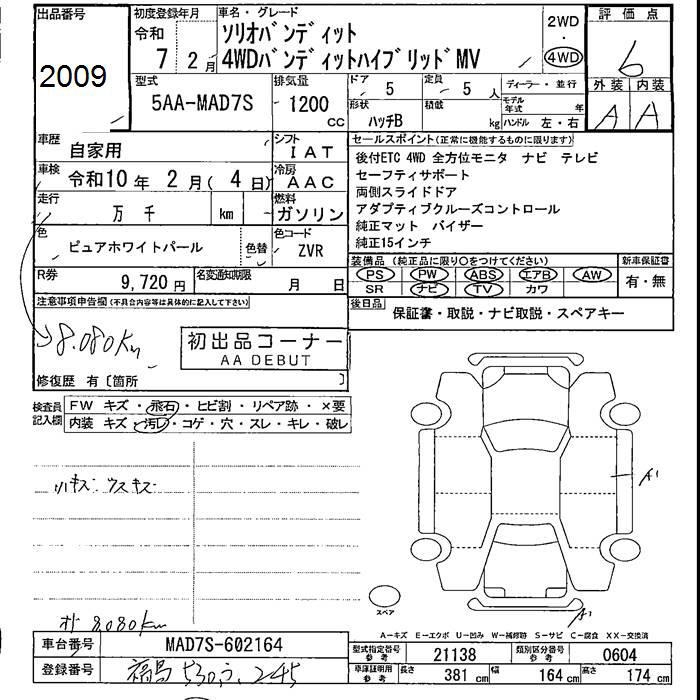 出品番号
2009
初度登録年月
令和
7 2月
車名・グレード
ソリオバンディット
4WDバンディットハイブリッドMV
2WD
・
4WD
評価点
6
外装 内装
A A
型式
5AA-MAD7S
排気量
1200
CC
ドア
5
定員
5 人
ディーラー・並行
形状
ハッチB
積載
kg
モデル年式
年
ハンドル 左・右
車歴
自家用
シフト
IAT
車検
令和10年 2月( 4日)
冷房
AAC
走行
万 千
km
燃料
ガソリン
色
ピュアホワイトパール
色替
色コード
ZVR
R券
9,720円
名変通知期限
月 日
セールスポイント(正常に機能するものに限ります)
後付ETC 4WD 全方位モニタ ナビ テレビ
セーフティサポート
両側スライドドア
アダプティブクルーズコントロール
純正マット バイザー
純正15インチ
装備品 (純正品に限り○をつけてください)
PS PW ABS エアB AW
SR ナビ TV カワ
新車保証書
有・無
後日品
保証書・取説・ナビ取説・スペアキー
注意事項申告欄(不具合内容等は具体的に記入して下さい)
8.080Km
初出品コーナー
AA DEBUT
修復歴 有〔箇所 〕
検査員
記入欄
FW キズ・飛石・ヒビ割・リペア跡・×要
内装 キズ・汚レ・コゲ・穴・スレ・キレ・破レ
小キズ ウスキズ
A1
スペア
A1
オド 8.080km
A-キズ E-エクボ U-凹み W-補修跡 S-サビ C-腐食 XX-交換済
車台番号
MAD7S-602164
登録番号
福島 530 う 245
型式指定番号
参考
21138
類別区分番号
参考
0604
車庫証明用
参考
長さ
381 cm
幅
164 cm
高さ
174 cm